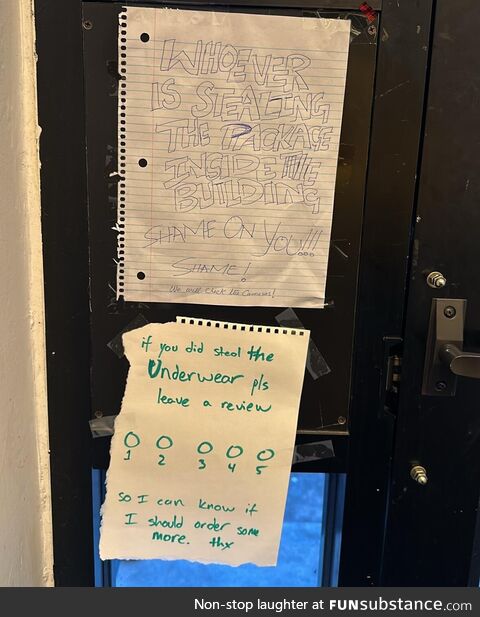 WHOEVER
IS STEALING
THE PACKAGE
INSIDE THE
BUILDING
SHAME ON YOU!!!
SHAME!
We will check the Cameras!
if you did steal the
Underwear pls
leave a review
1 2 3 4 5
so I can know if
I should order some
more. thx
Non-stop laughter at FUNsubstance.com